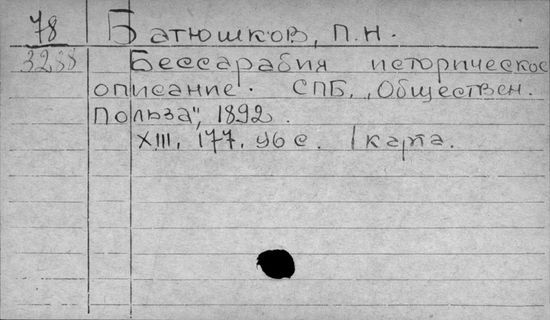 78 Батюшков, П.Н.
3238 Бессарабия историческое
описание. СПБ, „Обществен.
Польза", 1892.
XIII, 177, 96 с. 1 карта.